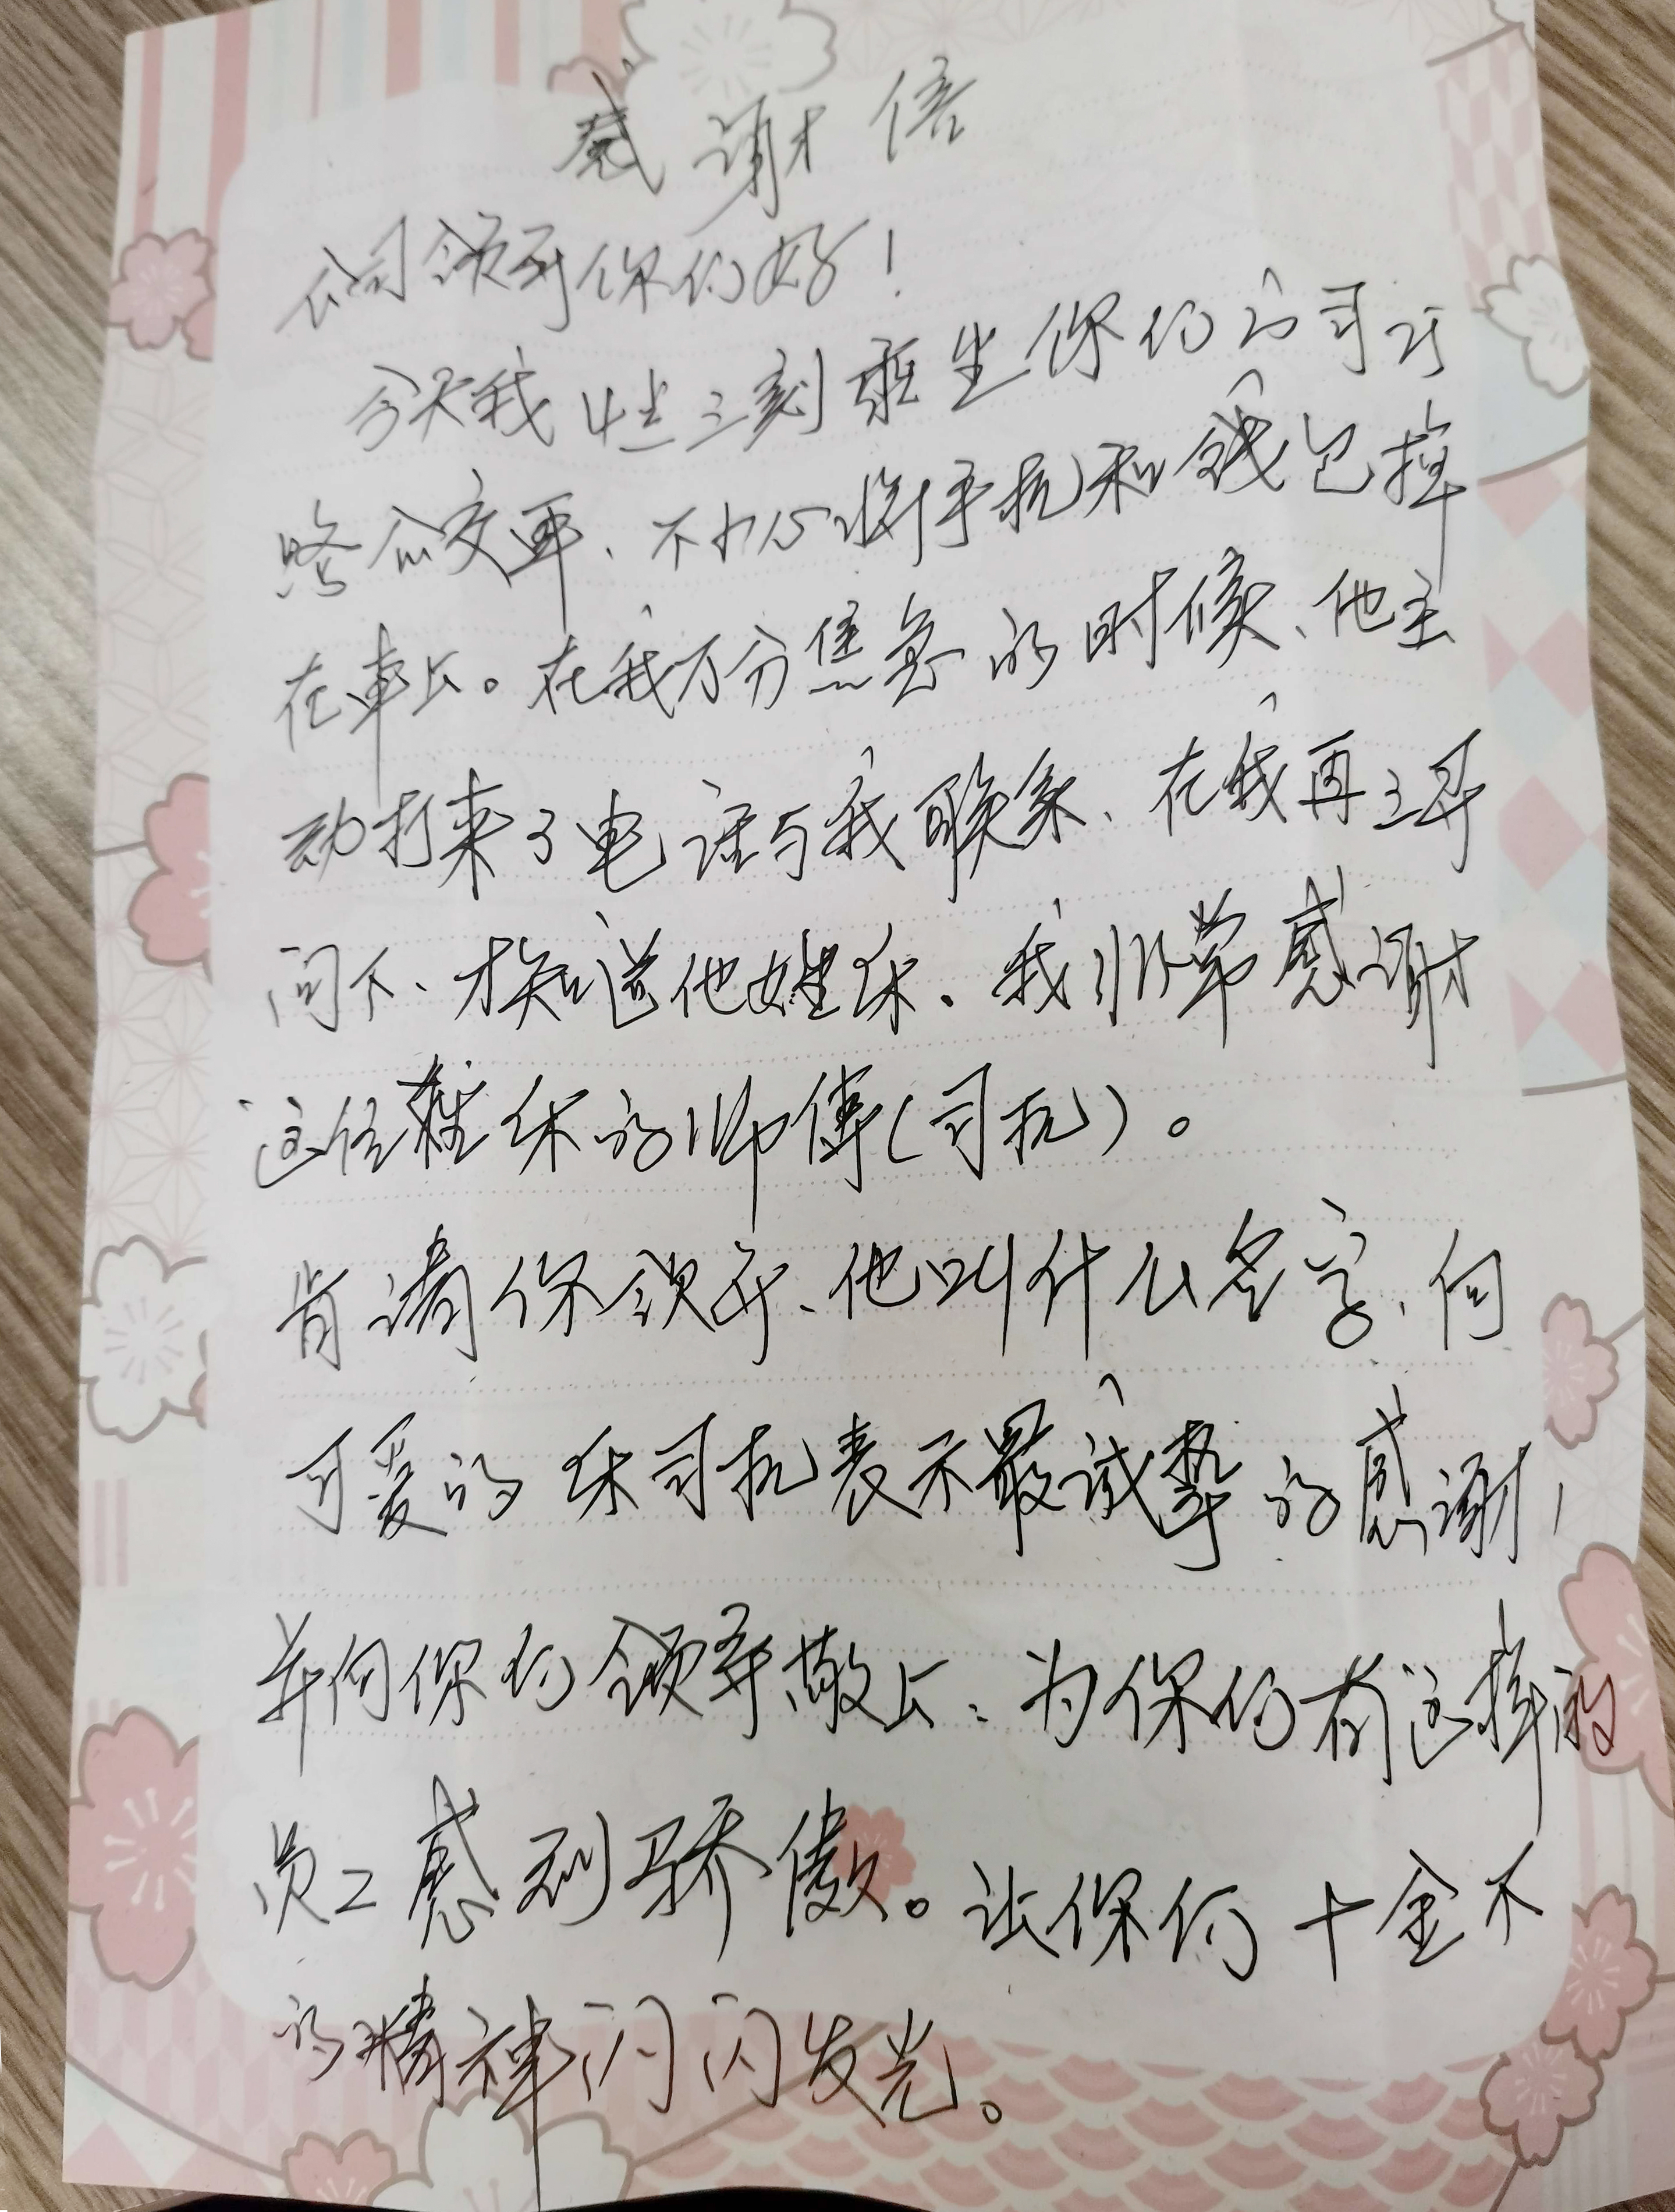 感谢信
公司领导你们好！
今天我4点三刻乘坐你们的司125
路公交車、不小心将手机和钱包掉
在車上。在我万分焦急的时候、他主
动打来了电话与我联系、在我再三寻
问下、才知道他姓休。我非常感谢
这位姓休的师傅（司机）。
肯请你领导、他叫什么名字、向
可爱的休司机表示最诚挚的感谢，
并向你们领导敬上：为你们有这样的
员工感到骄傲。让你们十全不
的精神闪闪发光。